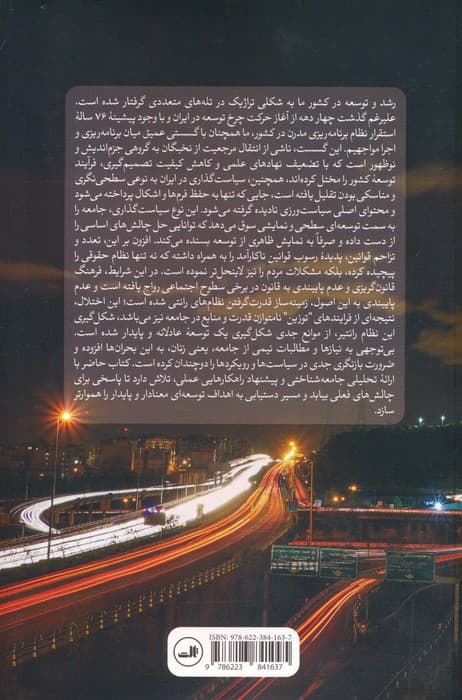 رشد و توسعه در کشور ما به شکلی تراژیک در تله‌های متعددی گرفتار شده است.
علیرغم گذشت چهار دهه از آغاز حرکت چرخ توسعه در ایران و با وجود پیشینهٔ ۷۶ سالهٔ
استقرار نظام برنامه‌ریزی مدرن در کشور، ما همچنان با گسستی عمیق میان برنامه‌ریزی و
اجرا مواجهیم. این گسست، ناشی از انتقال مرجعیت از نخبگان به گروهی جزم‌اندیش و
نوظهور است که با تضعیف نهادهای علمی و کاهش کیفیت تصمیم‌گیری، فرآیند
توسعهٔ کشور را مختل کرده‌اند، همچنین، سیاست‌گذاری در ایران به نوعی سطحی‌نگری
و مناسکی بودن تقلیل یافته است، جایی که تنها به حفظ فرم‌ها و اشکال پرداخته می‌شود
و محتوای اصلی سیاست‌ورزی نادیده گرفته می‌شود. این نوع سیاست‌گذاری، جامعه را
به سمت توسعه‌ای سطحی و نمایشی سوق می‌دهد که توانایی حل چالش‌های اساسی را
از دست داده و صرفاً به نمایش ظاهری از توسعه بسنده می‌کند. افزون بر این، تعدد و
تزاحم قوانین، پدیدهٔ رسوب قوانین ناکارآمد را به همراه داشته که نه تنها نظام حقوقی را
پیچیده کرده، بلکه مشکلات مردم را نیز لاینحل‌تر نموده است. در این شرایط، فرهنگ
قانون‌گریزی و عدم پایبندی به قانون در برخی سطوح اجتماعی رواج یافته است و عدم
پایبندی به این اصول، زمینه‌ساز قدرت‌گرفتن نظام‌های رانتی شده است؛ این اختلال،
نتیجه‌ای از فرایندهای "توزین" نامتوازن قدرت و منابع در جامعه نیز می‌باشد، شکل‌گیری
این نظام رانتیر، از موانع جدی شکل‌گیری یک توسعهٔ عادلانه و پایدار شده است.
بی‌توجهی به نیازها و مطالبات نیمی از جامعه، یعنی زنان، به این بحران‌ها افزوده و
ضرورت بازنگری جدی در سیاست‌ها و رویکردها را دوچندان کرده است. کتاب حاضر با
ارائهٔ تحلیلی جامعه‌شناختی و پیشنهاد راهکارهایی عملی، تلاش دارد تا پاسخی برای
چالش‌های فعلی بیابد و مسیر دستیابی به اهداف توسعه‌ای معنادار و پایدار را هموارتر
سازد.
ISBN: 978-622-384-163-7
9 786223 841637
ثالث